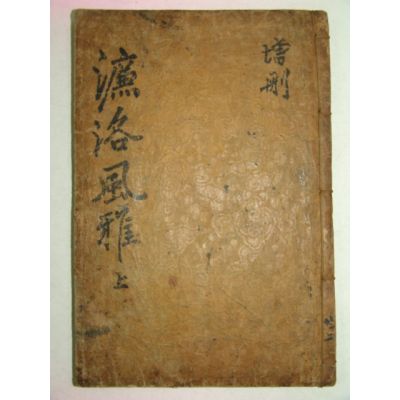 增刪
濂洛風雅 上